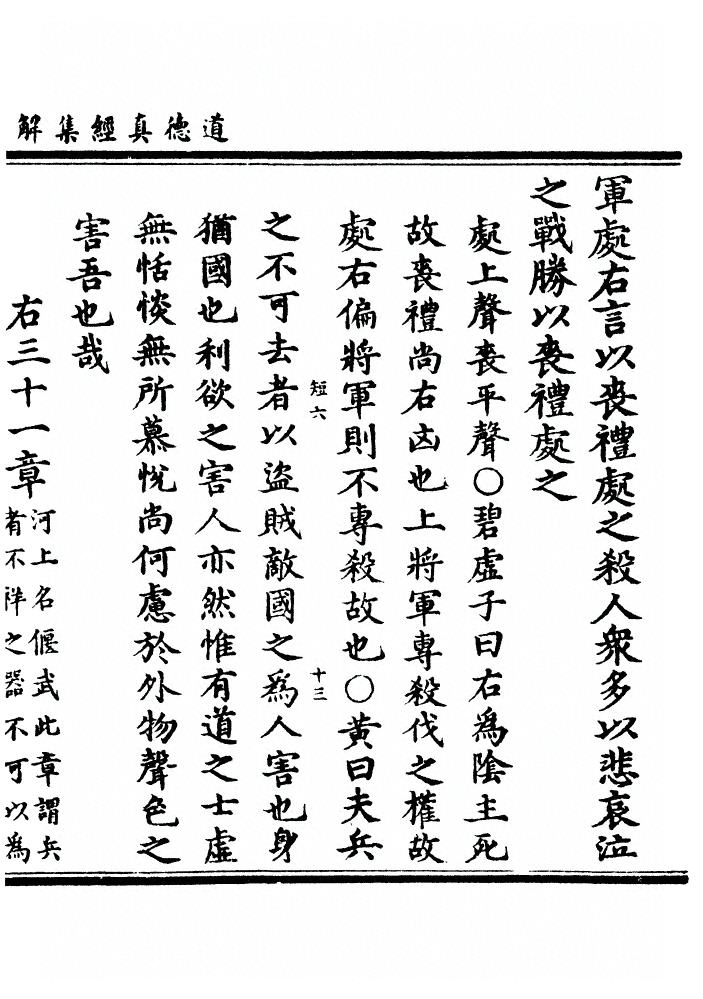 道德真經集解
軍處右言以喪禮處之殺人衆多以悲哀泣
之戰勝以喪禮處之
處上聲喪平聲○碧虛子曰右爲陰主死
故喪禮尚右凶也上將軍專殺伐之權故
處右偏將軍則不專殺故也○黄曰夫兵
短六
十三
之不可去者以盜賊敵國之爲人害也身
猶國也利欲之害人亦然惟有道之士虛
無恬惔無所慕悅尚何慮於外物聲色之
害吾也哉
右三十一章
河上名偃武此章謂兵
者不祥之器不可以爲